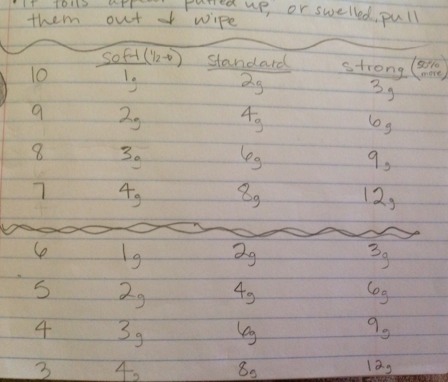 If foils appear puffed up, or swelled, pull
them out & wipe
soft (1/2 →) standard strong
10 1g 2g 3g
9 2g 4g 6g
8 3g 6g 9g
7 4g 8g 12g
6 1g 2g 3g
5 2g 4g 6g
4 3g 6g 9g
3 4g 8g 12g